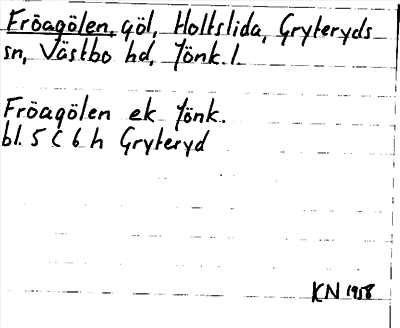 Fröagölen, göl, Holtslida, Gryteryds
sn, Västbo hd, Jönk. l.
Fröagölen ek Jönk.
bl. 5 C 6 h Gryteryd
KN 1958